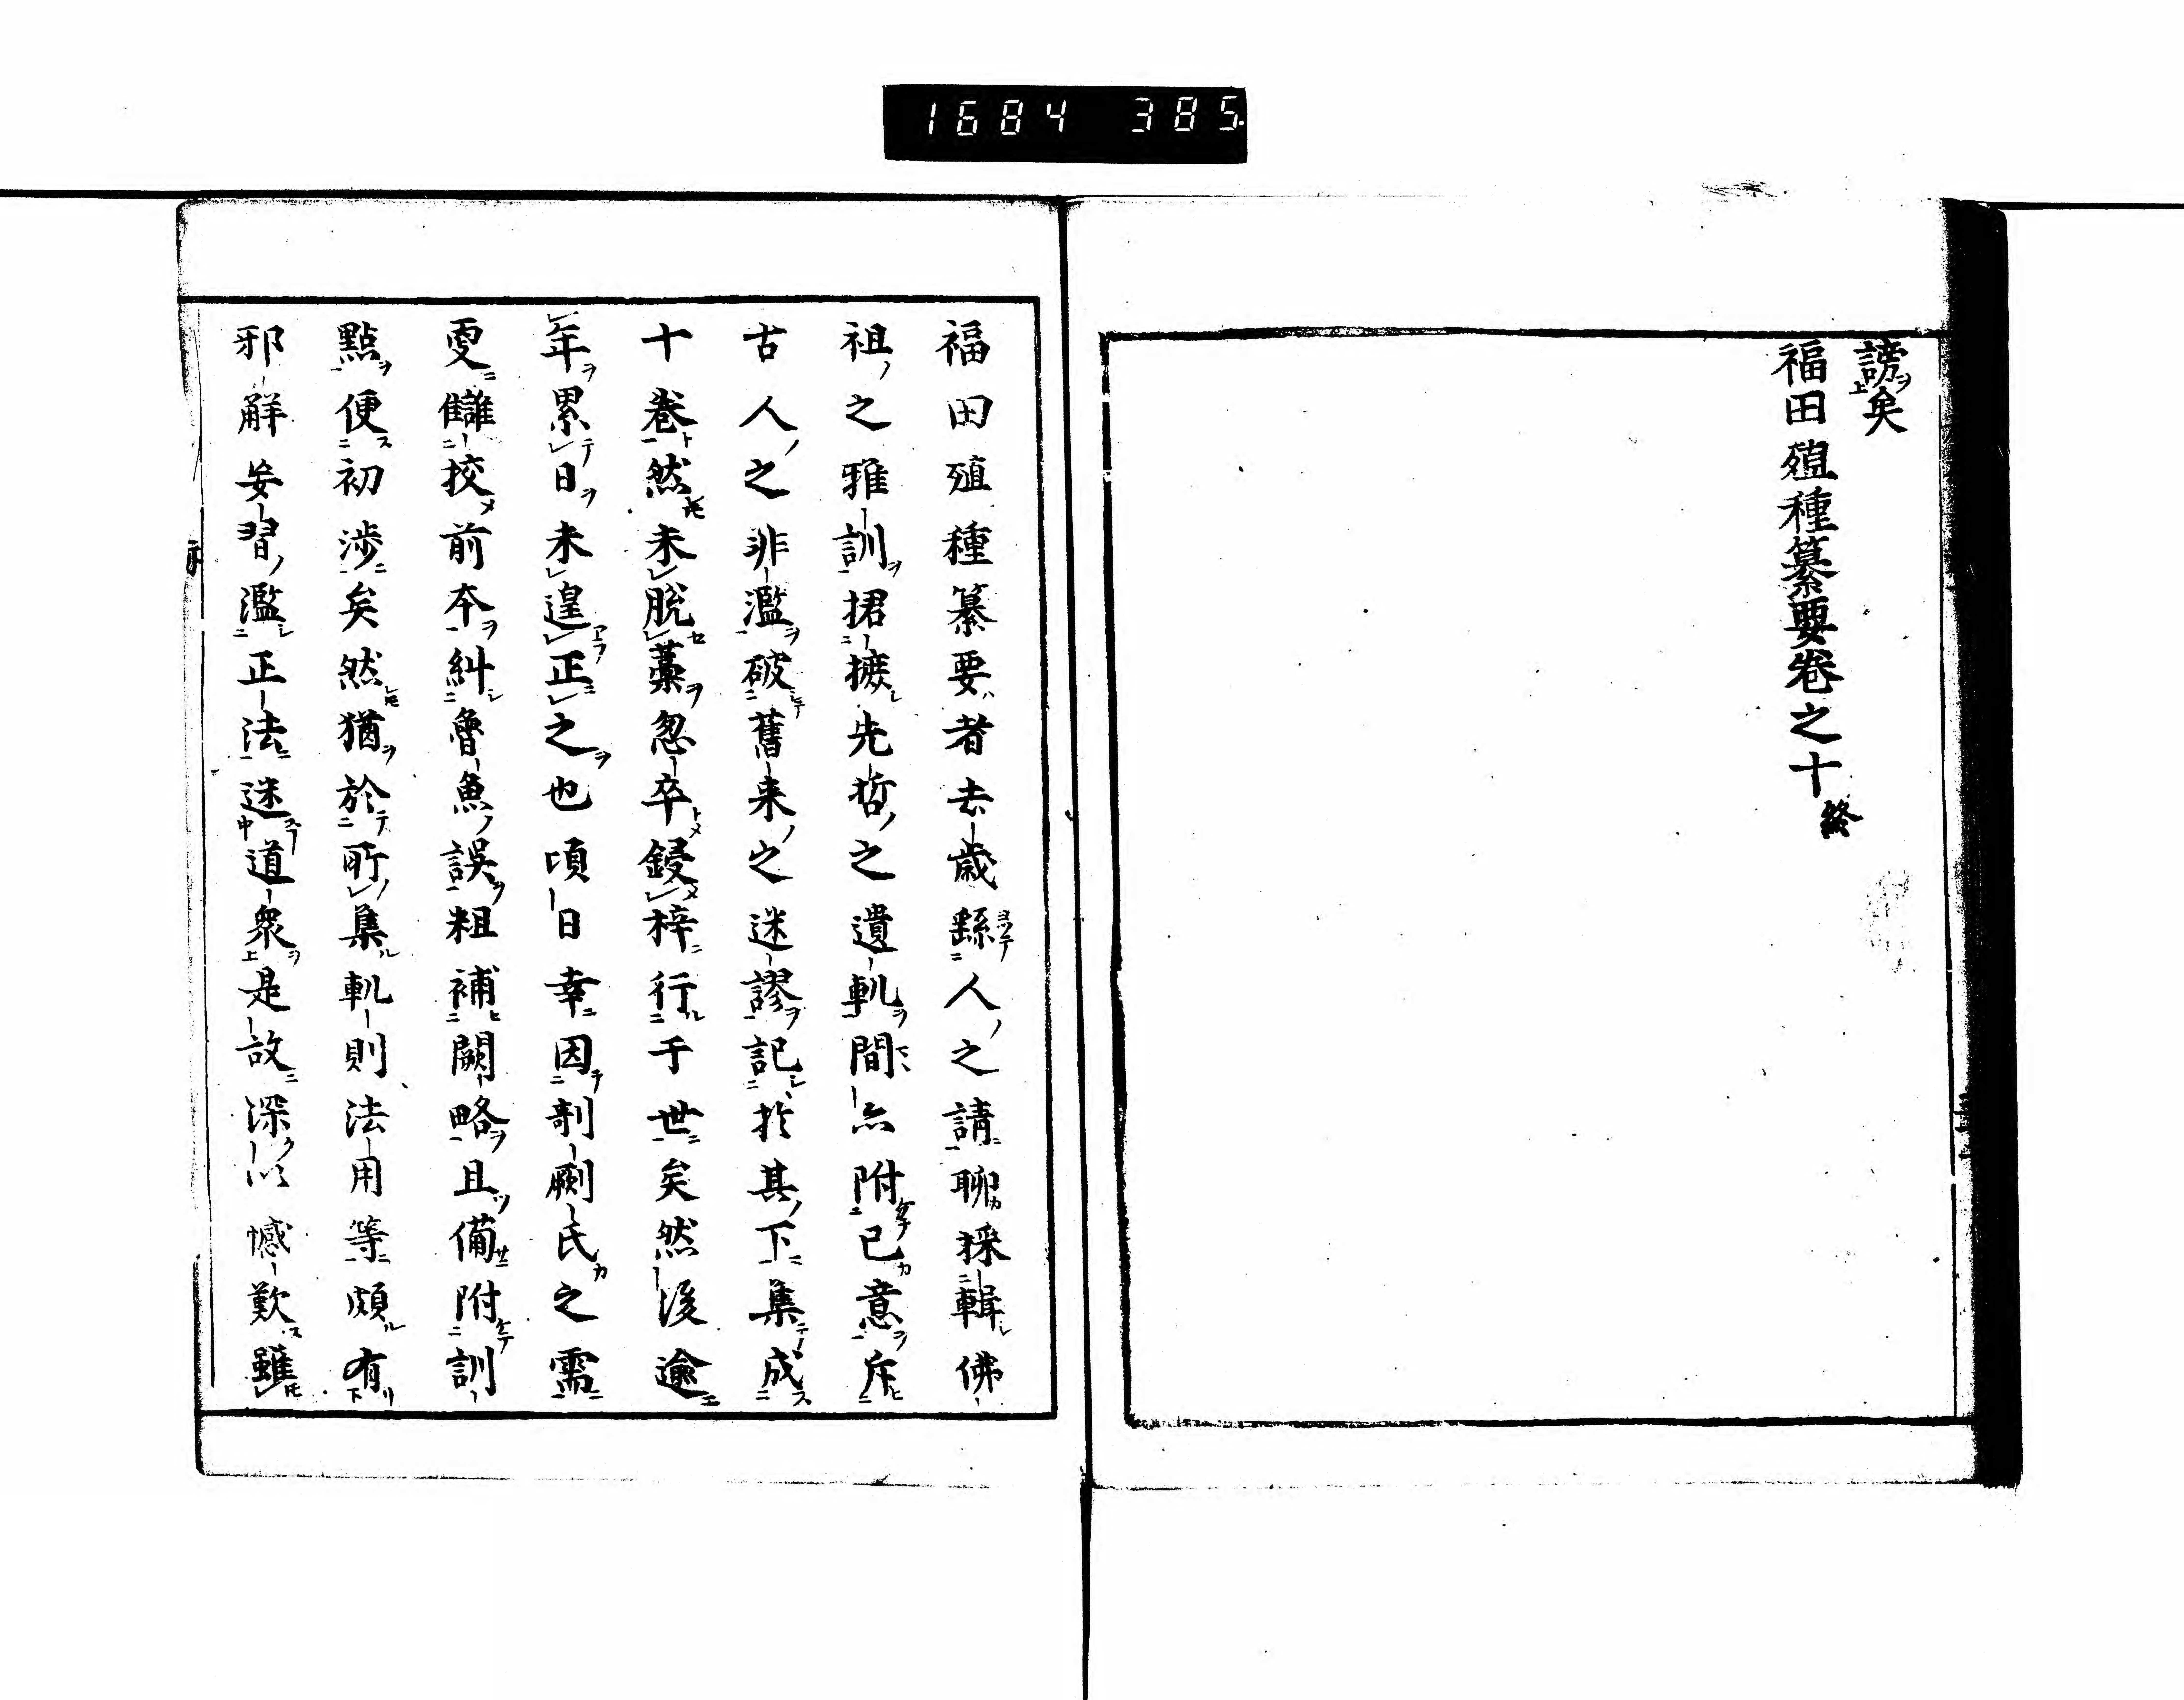 1684 385
謗矣
福田殖種纂要卷之十終
福田殖種纂要者去歳繇人之請聊採輯佛
祖之雅訓捃摭先哲之遺軌間亦附已意斥
古人之非濫破舊来之迷謬記於其下集成
十卷然未脱藁忽卒鋟梓行于世矣然後逾
年累日未遑正之也頃日幸因剞劂氏之需
更讎挍前本糾魯魚誤粗補闕略且備附訓
點便初渉矣然猶於所集軌則法用等頗有
邪解妄習濫正法迷道衆是故深以憾歎雖